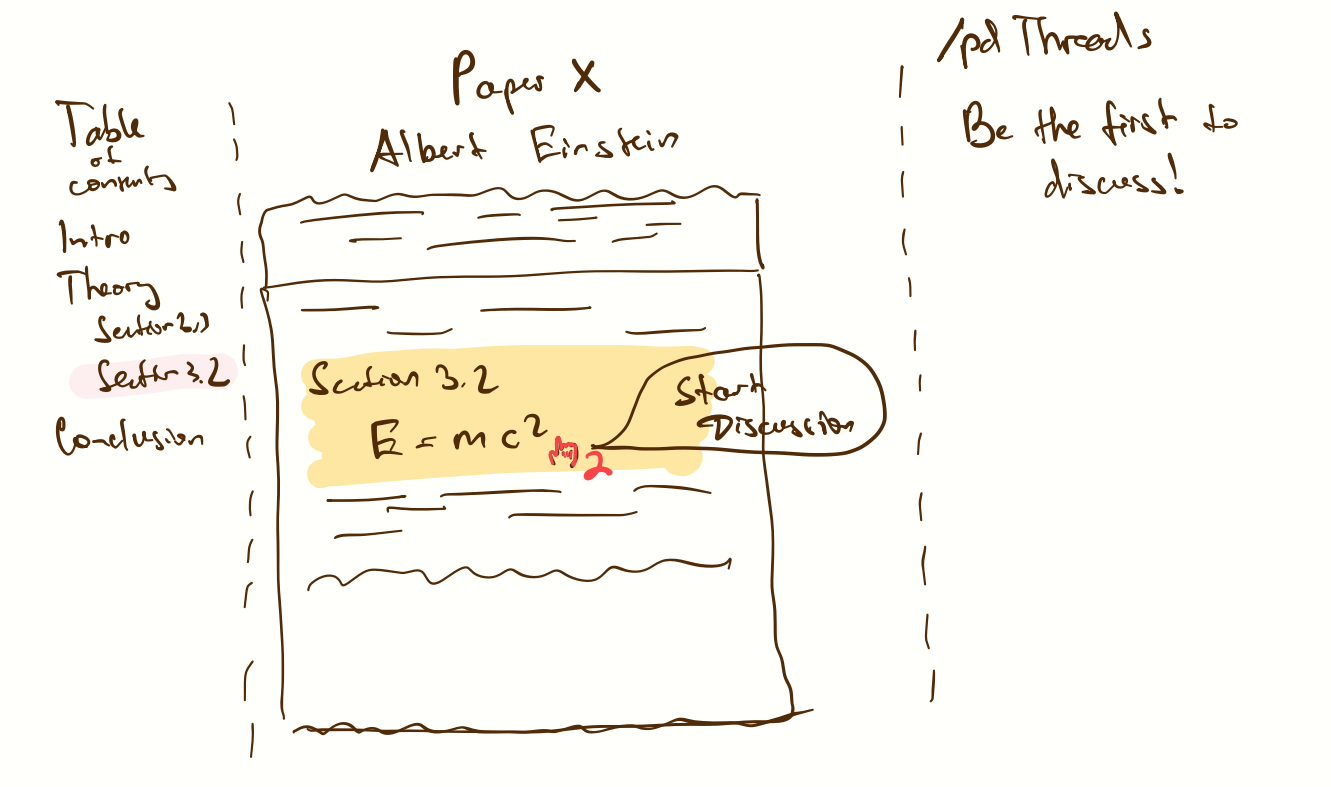 Table
of
contents
Intro
Theory
Section 3.2
Conclusion
Paper X
Albert Einstein
Section 3.2
E = mc²
2
Start
Discussion
/pd Threads
Be the first to
discuss!